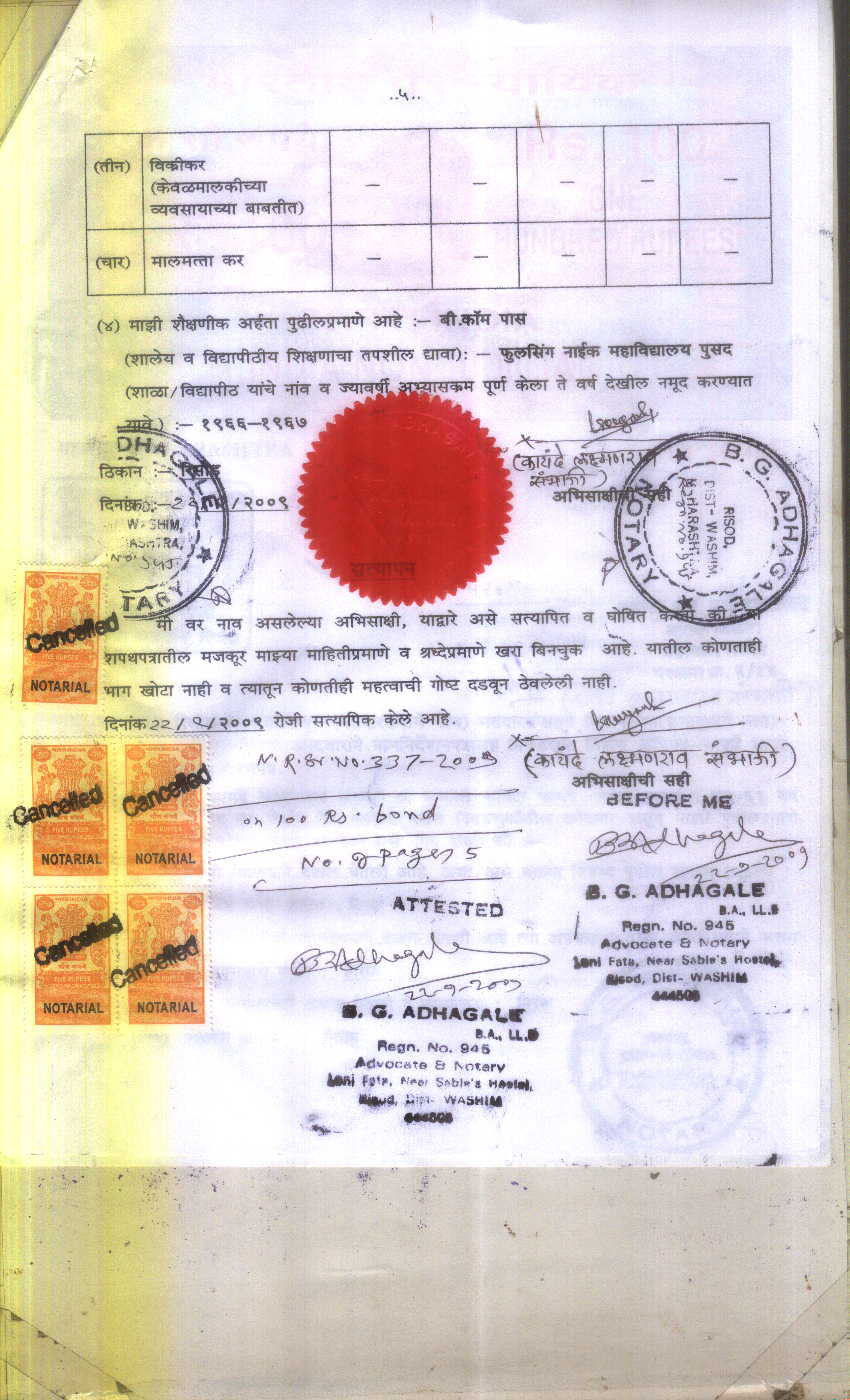 ..५..
(तीन) विक्रीकर
(केवळमालकीच्या
व्यवसायाच्या बाबतीत) — — — — —
(चार) मालमत्ता कर — — — — —
(४) माझी शैक्षणीक अर्हता पुढीलप्रमाणे आहे :— बी.कॉम पास
(शालेय व विद्यापीठीय शिक्षणाचा तपशील द्यावा): — फुलसिंग नाईक महाविद्यालय पुसद
(शाळा/विद्यापीठ यांचे नांव व ज्यावर्षी अभ्यासक्रम पूर्ण केला ते वर्ष देखील नमूद करण्यात
यावे) :— १९६६—१९६७
(कायंदे लक्ष्मणराव
संभाजी)
ठिकान :— रिसोड
अभिसाक्षीची सही
दिनांक :— /२००९
DHAGALE
WASHIM,
NOTARY
B. G. ADHAGALE
RISOD,
DIST- WASHIM,
MAHARASHTRA
NOTARY
सत्यापन
मी वर नाव असलेल्या अभिसाक्षी, याद्वारे असे सत्यापित व घोषित करतो की
शपथपत्रातील मजकूर माझ्या माहितीप्रमाणे व श्रध्देप्रमाणे खरा बिनचुक आहे. यातील कोणताही
भाग खोटा नाही व त्यातून कोणतीही महत्वाची गोष्ट दडवून ठेवलेली नाही.
दिनांक 22/9/२००९ रोजी सत्यापिक केले आहे.
(कायंदे लक्ष्मणराव संभाजी)
अभिसाक्षीची सही
N.R.Sr.No. 337-2009
on 100 Rs. bond
No. of pages 5
BEFORE ME
BBAdhagale
22-9-2009
B. G. ADHAGALE
B.A., LL.B
Regn. No. 945
Advocate & Notary
Loni Fata, Near Sable's Hostel,
Risod, Dist- WASHIM
444506
ATTESTED
BBAdhagale
22-9-2009
B. G. ADHAGALE
B.A., LL.B
Regn. No. 945
Advocate & Notary
Loni Fata, Near Sable's Hostel,
Risod, Dist- WASHIM
444506
Cancelled
FIVE RUPEES
NOTARIAL
Cancelled
FIVE RUPEES
NOTARIAL
Cancelled
FIVE RUPEES
NOTARIAL
Cancelled
FIVE RUPEES
NOTARIAL
Cancelled
FIVE RUPEES
NOTARIAL